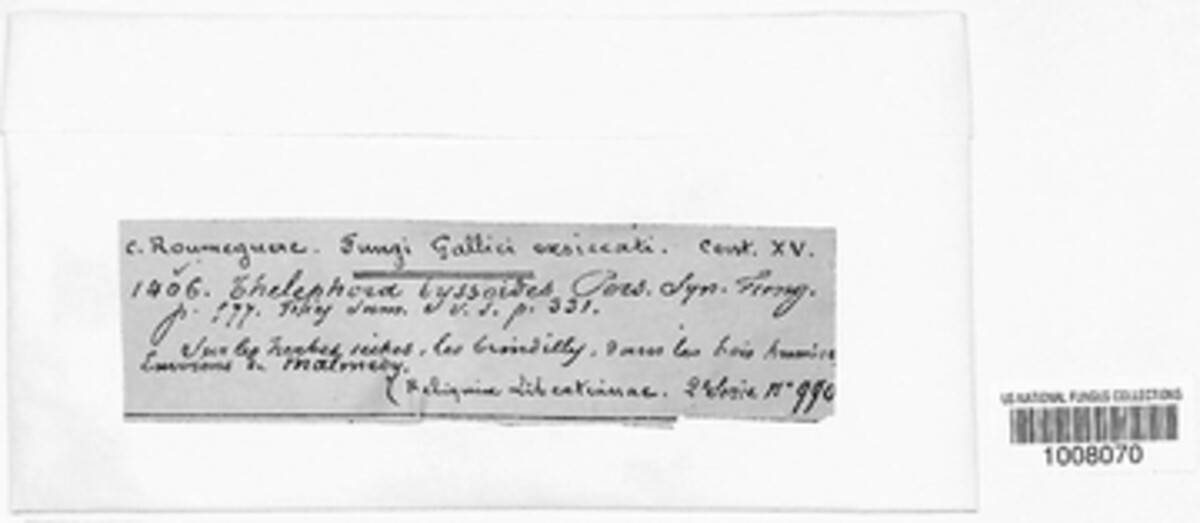 C. Roumeguere. Fungi Gallici exsiccati. Cent. XV.
1406. Thelephora byssoides Pers. Syn. Fung.
p. 577. Fries Summ. S. V. S. p. 331.
Sur les herbes sèches, les brindilles, dans les bois humides
Environs de Malmedy.
(Reliquiae Libertianae. 2e Serie No 996
US NATIONAL FUNGUS COLLECTIONS
1008070